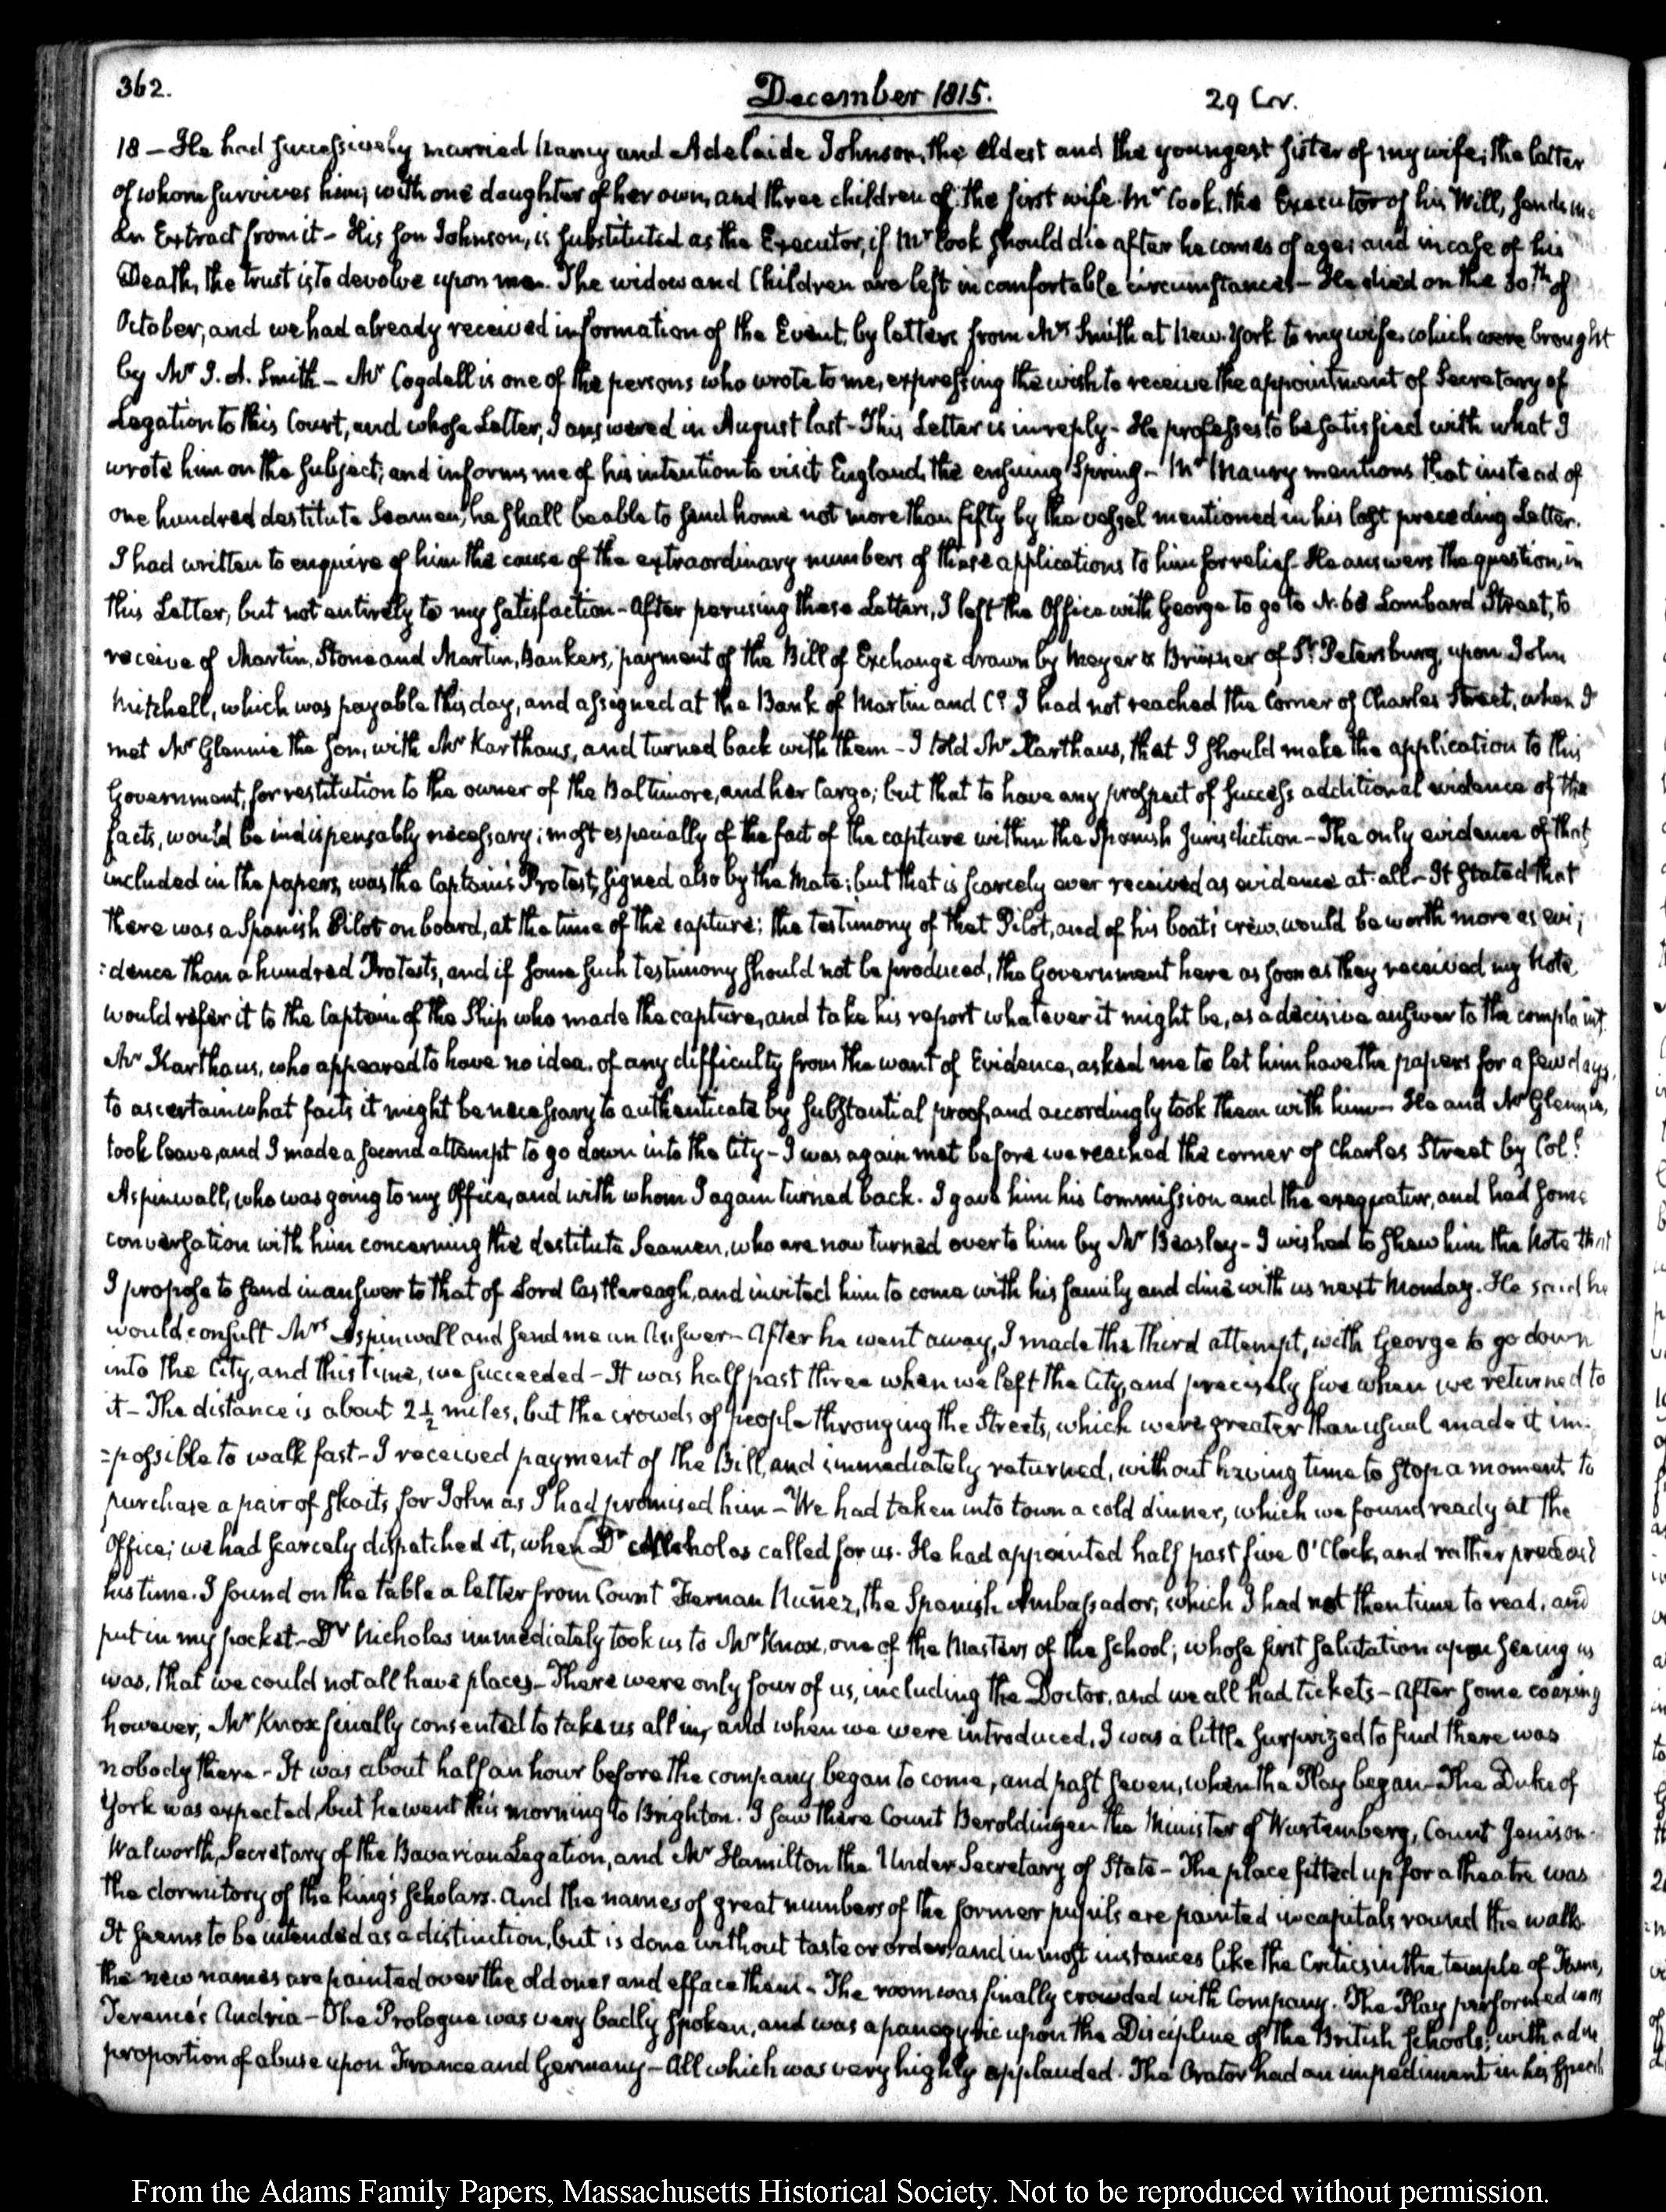 362.
December 1815.
29
18 – He had successively married Nancy and Adelaide Johnson, the eldest and the youngest sister of my wife; the latter
of whom survives him; with one daughter of her own, and three children of the first wife. Mr Cook, the Executor of his Will, sends me
an Extract from it – His son Johnson, is substituted as the Executor, if Mr Cook should die after he comes of age; and in case of his
Death, the trust is to devolve upon me. The widow and Children are left in comfortable circumstances – He died on the 30.th of
October, and we had already received information of the Event, by letters from Mrs Smith at New-York to my wife, which were brought
by Mr J. A. Smith – Mr Cogdell is one of the persons who wrote to me, expressing the wish to receive the appointment of Secretary of
Legation to this Court, and whose Letter, I answered in August last – This Letter is in reply – He professes to be satisfied with what I
wrote him on the subject; and informs me of his intention to visit England, the ensuing Spring – Mr Maury mentions that instead of
one hundred destitute Seamen, he shall be able to send home not more than fifty by the vessel mentioned in his last preceding Letter.
I had written to enquire of him the cause of the extraordinary numbers of these applications to him for relief – He answers the question, in
this Letter, but not entirely to my satisfaction – After perusing these Letters, I left the Office with George to go to N. 68 Lombard Street, to
receive of Martin, Stone and Martin, Bankers, payment of the Bill of Exchange drawn by Meyer & Brüxner of St Petersburg, upon John
Mitchell, which was payable this day, and assigned at the Bank of Martin and Co I had not reached the Corner of Charles Street, when I
met Mr Glennie the Son, with Mr Karthaus, and turned back with them – I told Mr Karthaus, that I should make the application to this
Government, for restitution to the owner of the Baltimore, and her Cargo; but that to have any prospect of success additional evidence of the
facts, would be indispensably necessary; most especially of the fact of the capture within the Spanish Jurisdiction – The only evidence of that
included in the papers, was the Captain's Protest, signed also by the Mate; but that is scarcely ever received as evidence at all – It stated that
there was a Spanish Pilot on board, at the time of the capture; the testimony of that Pilot, and of his boat's crew, would be worth more as evi;
:dence than a hundred Protests, and if some such testimony should not be produced, the Government here as soon as they received my Note
would refer it to the Captain of the Ship who made the capture, and take his report whatever it might be, as a decisive answer to the complaint.
Mr Karthaus, who appeared to have no idea, of any difficulty from the want of Evidence, asked me to let him have the papers for a few days,
to ascertain what facts it might be necessary to authenticate by substantial proof, and accordingly took them with him – He and Mr Glennie,
took leave, and I made a second attempt to go down into the City – I was again met before we reached the corner of Charles Street by Col.l
Aspinwall, who was going to my Office, and with whom I again turned back. I gave him his Commission and the exequatur, and had some
conversation with him concerning the destitute Seamen, who are now turned over to him by Mr Beasley – I wished to shew him the Note that
I propose to send in answer to that of Lord Castlereagh, and invited him to come with his family and dine with us next Monday. He said he
would consult Mrs Aspinwall and send me an Answer – After he went away, I made the third attempt, with George to go down
into the City, and this time, we succeeded – It was half past three when we left the City, and precisely five when we returned to
it – The distance is about 2 1/2 miles, but the crowds of people thronging the Streets, which were greater than usual made it im-
=possible to walk fast – I received payment of the Bill, and immediately returned, without having time to stop a moment to
purchase a pair of skaits for John as I had promised him – We had taken into town a cold dinner, which we found ready at the
Office; we had scarcely dispatched it, when Dr Nicholas called for us. He had appointed half past five O'Clock, and rather preceded
his time. I found on the table a letter from Count Fernan Nuñez, the Spanish Ambassador; which I had not then time to read, and
put in my pocket – Dr Nicholas immediately took us to Mr Knox, one of the Masters of the School; whose first salutation upon seeing us
was, that we could not all have places – There were only four of us, including the Doctor, and we all had tickets – After some coaxing
however, Mr Knox finally consented to take us all in, and when we were introduced, I was a little surprized to find there was
nobody there – It was about half an hour before the company began to come, and past seven, when the Play began – The Duke of
York was expected, but he went this morning to Brighton. I saw there Count Beroldingen the Minister of Wurtemberg, Count Jenison-
Walworth, Secretary of the Bavarian Legation, and Mr Hamilton the Under Secretary of State – The place fitted up for a theatre was
the dormitory of the king's scholars. And the names of great numbers of the former pupils are painted in capitals round the walls.
It seems to be intended as a distinction, but is done without taste or order, and in most instances like the Critics in the temple of Fame,
the new names are painted over the old ones and efface them – The room was finally crowded with Company. The Play performed was
Terence's Andria – The Prologue was very badly spoken, and was a panegyric upon the Discipline of the British Schools; with a due
proportion of abuse upon France and Germany – All which was very highly applauded. The Orator had an impediment in his speech
From the Adams Family Papers, Massachusetts Historical Society. Not to be reproduced without permission.